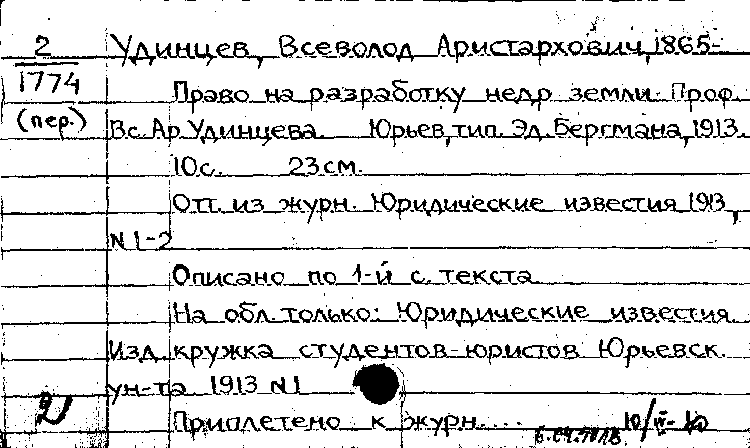 2
1774
(пер.)
Удинцев, Всеволод Аристархович, 1865-
Право на разработку недр земли. Проф.
Вс. Ар. Удинцева. Юрьев, тип. Эд. Бергмана, 1913.
10с. 23см.
Отт. из журн. Юридические известия 1913,
N 1-2
Описано по 1-й с. текста
На обл. только: Юридические известия.
Изд. кружка студентов-юристов Юрьевск.
ун-та 1913 N1
Приплетено к журн....
2